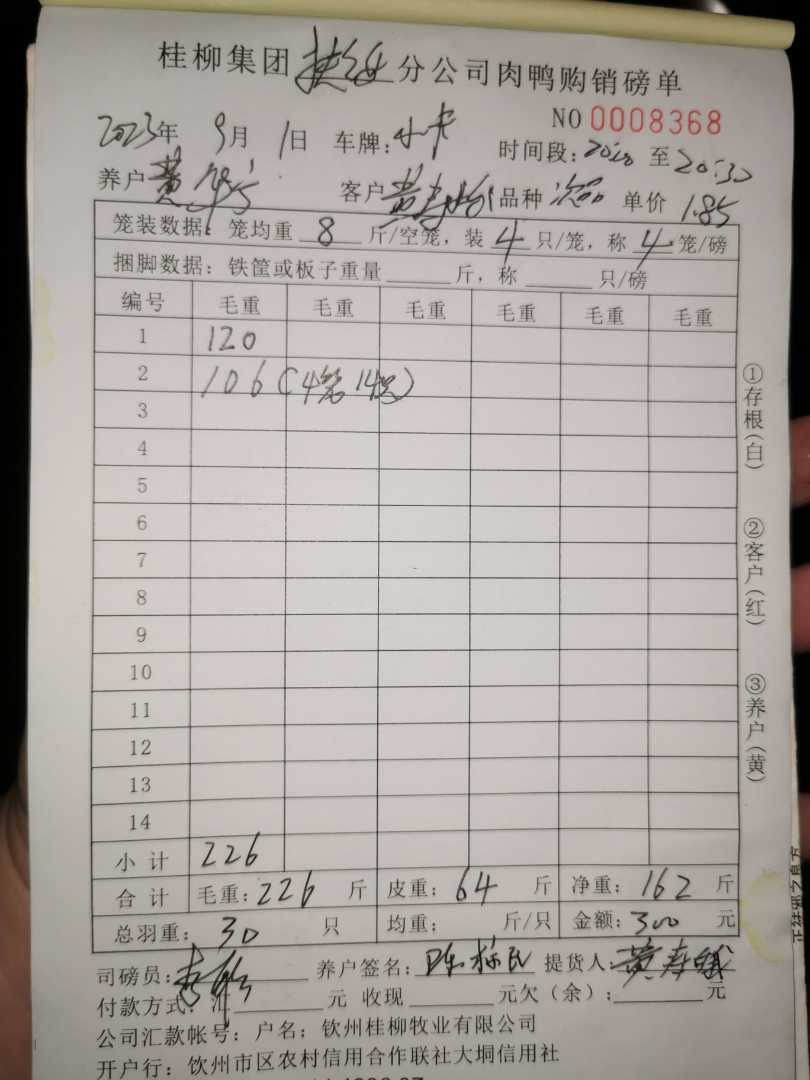 桂柳集团 分公司肉鸭购销磅单
NO 0008368
2023年 9月 1日 车牌:小卡 时间段:20:20 至 20:30
养户 黄 客户 黄寿 品种 次品 单价 1.85
笼装数据:笼均重 8 斤/空笼,装 4 只/笼,称 4 笼/磅
捆脚数据:铁筐或板子重量 斤,称 只/磅
编号 毛重 毛重 毛重 毛重 毛重 毛重
1 120
2 106(4笼14只)
3
4
5
6
7
8
9
10
11
12
13
14
小计 226
合计 毛重:226 斤 皮重:64 斤 净重:162 斤
总羽重:30 只 均重: 斤/只 金额:300 元
司磅员: 养户签名:陈栋民 提货人:黄寿
付款方式:汇 元 收现 元欠(余): 元
公司汇款帐号:户名:钦州桂柳牧业有限公司
开户行:饮州市区农村信用合作联社大垌信用社
①存根(白)
②客户(红)
③养户(黄)